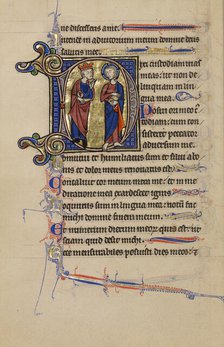 ne discesseris a me.
Intende in adiutorium meum domine deus
salutis mee.
Dixi custodiam uias
meas: ut non de
linquam in lingua
in lingua mea.
Posui ori meo cus
todiam: cum
consisteret peccator
aduersum me.
Obmutui et humiliatus sum et silui
a bonis et dolor meus renouatus est.
Concaluit cor meum intra me et in me
ditatione mea exardescet ignis.
Locutus sum in lingua mea: notum fac
michi domine finem meum.
Et numerum dierum meorum quis est: ut
sciam quid desit michi.
Ecce mensurabiles posuisti dies meos: et